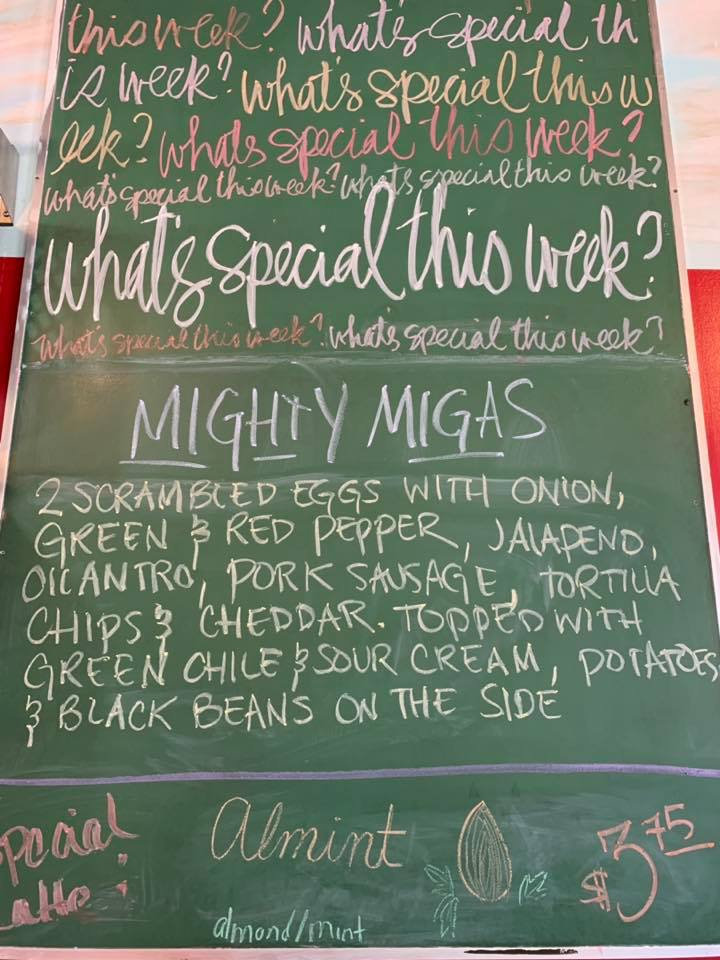 this week? what's special th
is week? what's special this w
eek? whats special this week?
what's special this week? what's special this week?
what's special this week?
what's special this week? what's special this week?
MIGHTY MIGAS
2 SCRAMBLED EGGS WITH ONION,
GREEN & RED PEPPER, JALAPENO,
CILANTRO, PORK SAUSAGE, TORTILLA
CHIPS & CHEDDAR. TOPPED WITH
GREEN CHILE & SOUR CREAM, POTATOES
& BLACK BEANS ON THE SIDE
pecial
atte:
Almint
almond/mint
$3.75